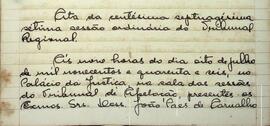 Ata da centésima septuagésima
sétima sessão ordinária do Tribunal
Regional.
Ás nove horas do dia oito de julho
de mil novecentos e quarenta e seis, no
Palácio da Justiça, na sala das sessões
do Tribunal de Apelação, presentes os
Exmos. Srs. Des. João Paes de Carvalho